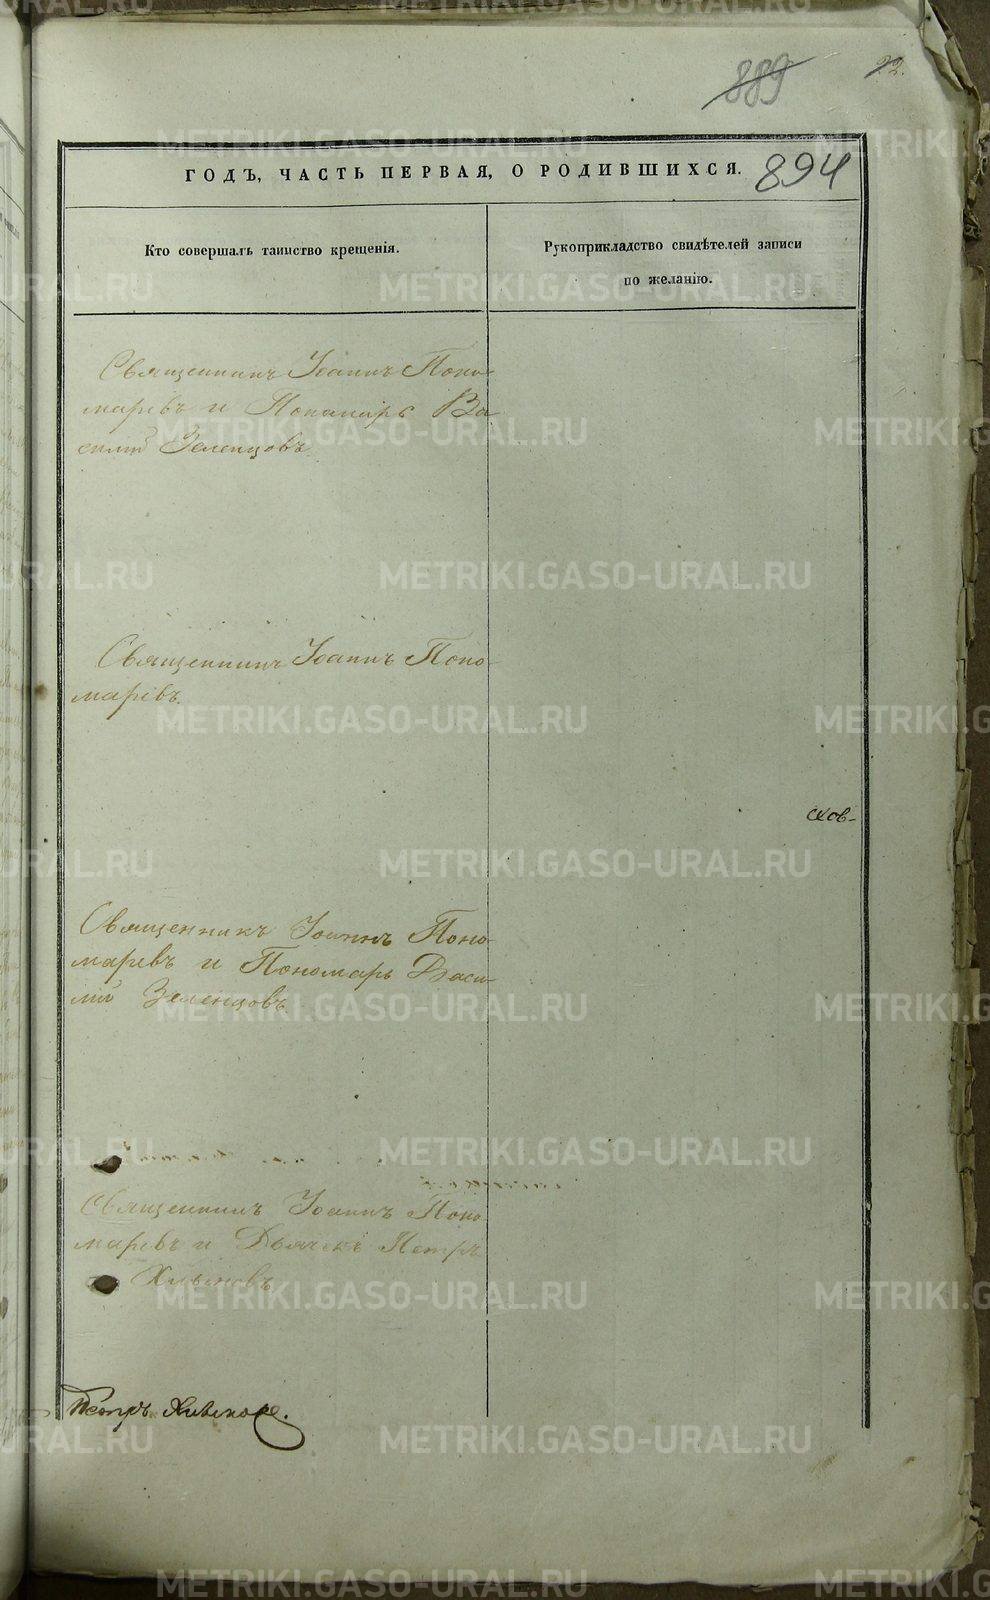 889 22.
ГОДЪ, ЧАСТЬ ПЕРВАЯ, О РОДИВШИХСЯ. 894
Кто совершалъ таинство крещенія.
Рукоприкладство свидѣтелей записи
по желанію.
Священникъ Іоаннъ Поно-
маревъ и Пономарь Ва
силій Зеленцовъ
Священникъ Іоаннъ Поно
маревъ.
схов-
Священникъ Іоаннъ Поно-
маревъ и Пономарь Васи-
лій Зеленцовъ
Священникъ Іоаннъ Поно
маревъ и Дьячекъ Петръ
Хивинов
Петръ
METRIKI.GASO-URAL.RU